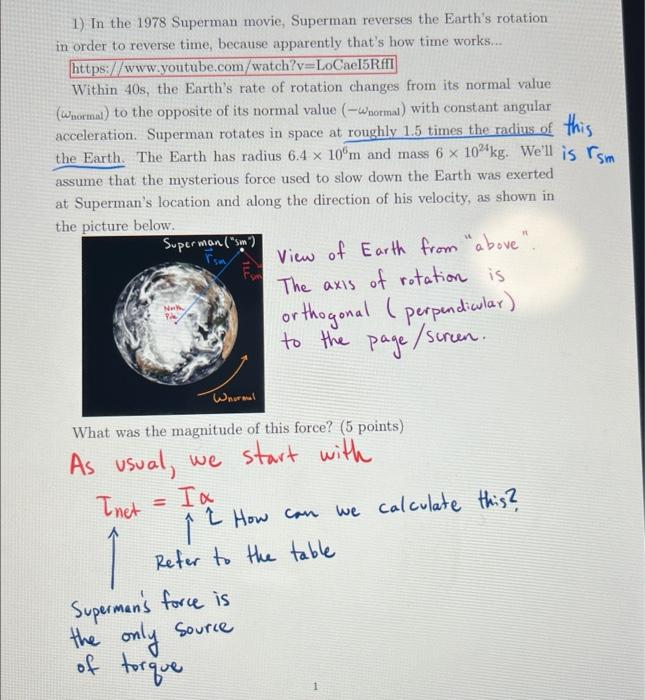 1) In the 1978 Superman movie, Superman reverses the Earth's rotation
in order to reverse time, because apparently that's how time works...
https://www.youtube.com/watch?v=LoCaeI5RffI
Within 40s, the Earth's rate of rotation changes from its normal value
(ωnormal) to the opposite of its normal value (−ωnormal) with constant angular
acceleration. Superman rotates in space at roughly 1.5 times the radius of this
the Earth. The Earth has radius 6.4 × 10⁶m and mass 6 × 10²⁴kg. We'll is rsm
assume that the mysterious force used to slow down the Earth was exerted
at Superman's location and along the direction of his velocity, as shown in
the picture below.
Superman ("sm")
r⃗sm
F⃗sm
North
Pole
ωnormal
View of Earth from "above".
The axis of rotation is
orthogonal (perpendicular)
to the page/screen.
What was the magnitude of this force? (5 points)
As usual, we start with
τnet = Iα
↑ How can we calculate this?
Refer to the table
Superman's force is
the only source
of torque
1